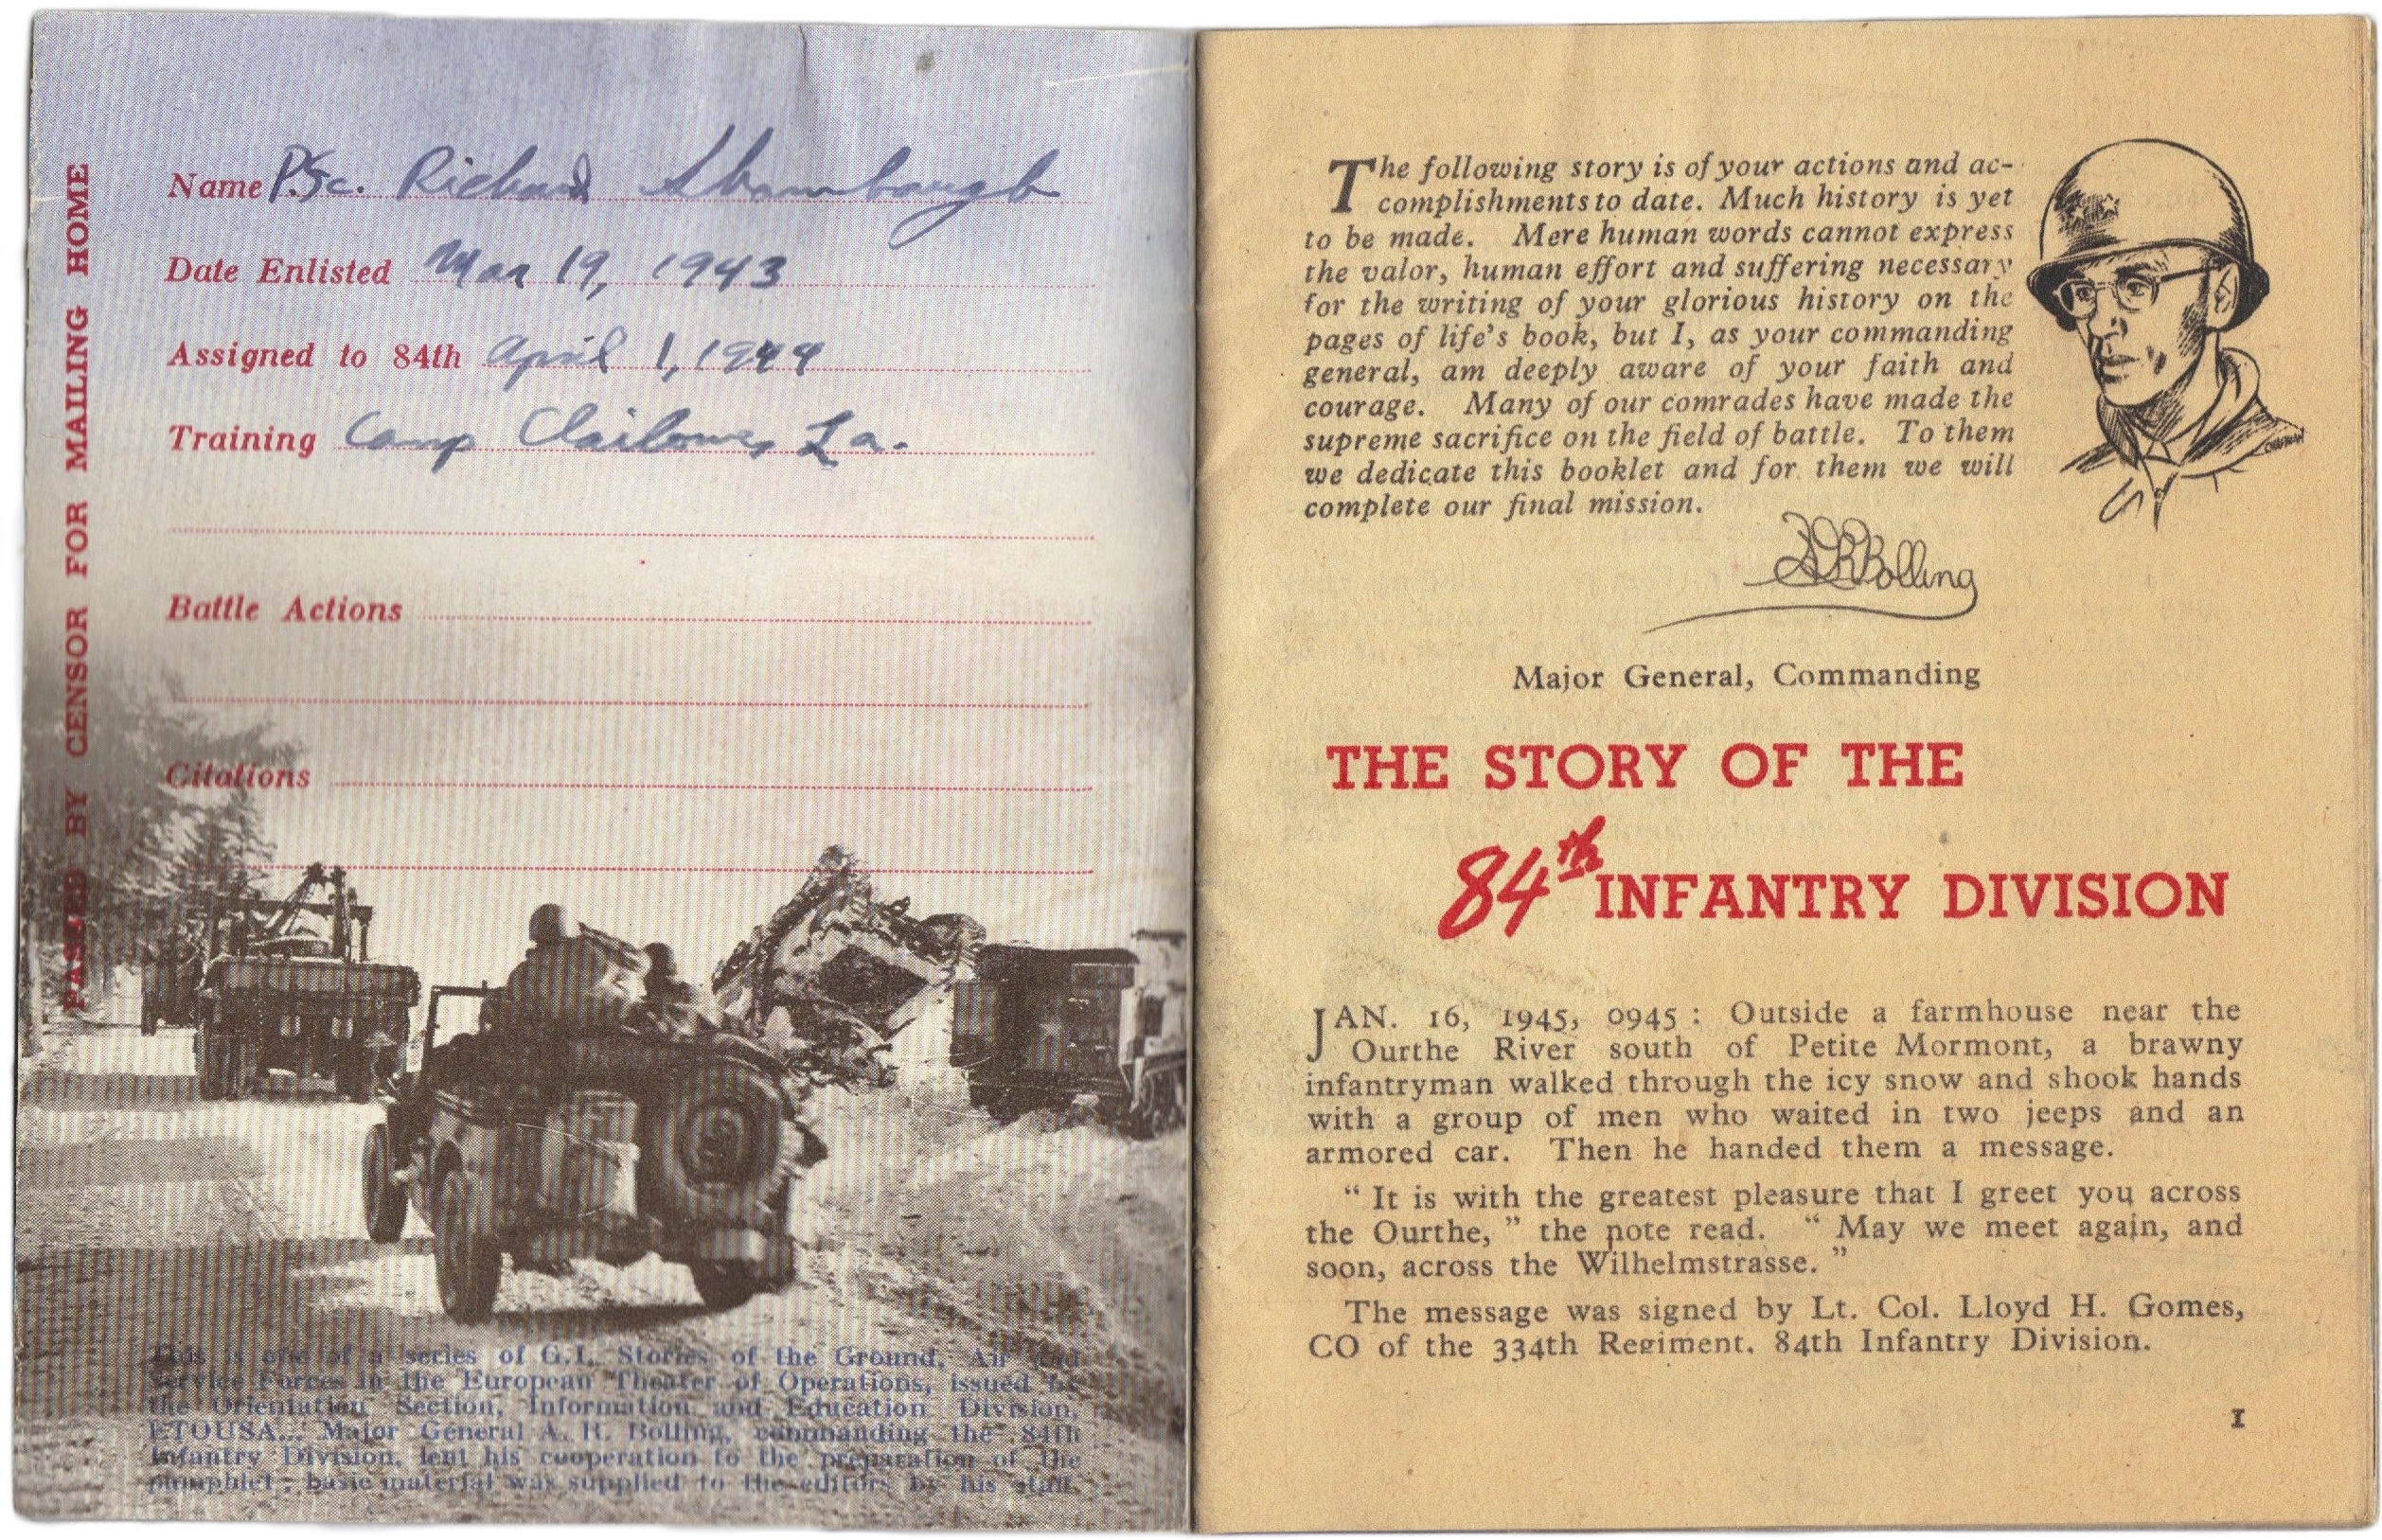 PASSED BY CENSOR FOR MAILING HOME
Name Pfc. Richard Shambaugh
Date Enlisted Mar 19, 1943
Assigned to 84th April 1, 1944
Training Camp Claiborne, La.
Battle Actions
Citations
This is one of a series of G.I. Stories of the Ground, Air and
Service Forces in the European Theater of Operations, issued by
the Orientation Section, Information and Education Division,
ETOUSA... Major General A. R. Bolling, commanding the 84th
Infantry Division, lent his cooperation to the preparation of the
pamphlet ; basic material was supplied to the editors by his staff.
The following story is of your actions and ac-
complishments to date. Much history is yet
to be made. Mere human words cannot express
the valor, human effort and suffering necessary
for the writing of your glorious history on the
pages of life's book, but I, as your commanding
general, am deeply aware of your faith and
courage. Many of our comrades have made the
supreme sacrifice on the field of battle. To them
we dedicate this booklet and for them we will
complete our final mission.
A R Bolling
Major General, Commanding
THE STORY OF THE
84th INFANTRY DIVISION
JAN. 16, 1945, 0945 : Outside a farmhouse near the
Ourthe River south of Petite Mormont, a brawny
infantryman walked through the icy snow and shook hands
with a group of men who waited in two jeeps and an
armored car. Then he handed them a message.
“ It is with the greatest pleasure that I greet you across
the Ourthe, ” the note read. “ May we meet again, and
soon, across the Wilhelmstrasse. ”
The message was signed by Lt. Col. Lloyd H. Gomes,
CO of the 334th Regiment, 84th Infantry Division.
1